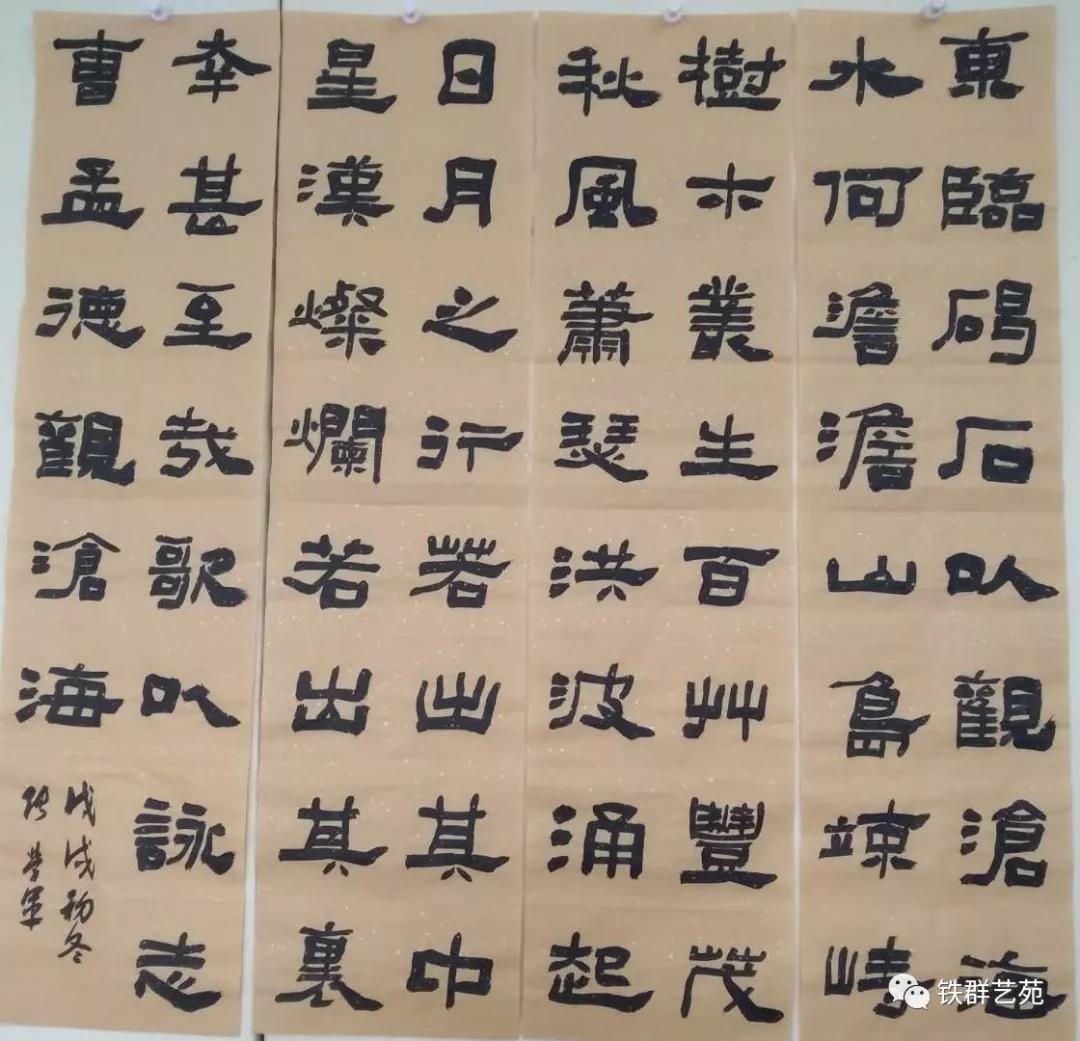 東臨碣石以觀滄海
水何澹澹山島竦峙
樹木叢生百艸豐茂
秋風蕭瑟洪波涌起
日月之行若出其中
星漢燦爛若出其裏
幸甚至哉歌以詠志
曹孟德觀滄海
戊戌初冬
张學軍
铁群艺苑